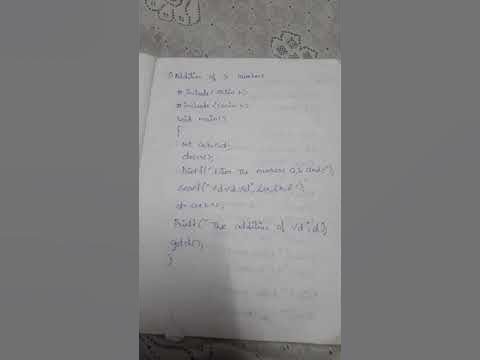 1) Addition of 3 numbers
# include<stdio.h>
# include<conio.h>
void main()
{
int a,b,c,d;
clrscr();
printf("Enter The numbers a,b and c");
scanf("%d%d%d",&a,&b,&c);
d=a+b+c;
Printf("The addition of %d",d);
getch();
}